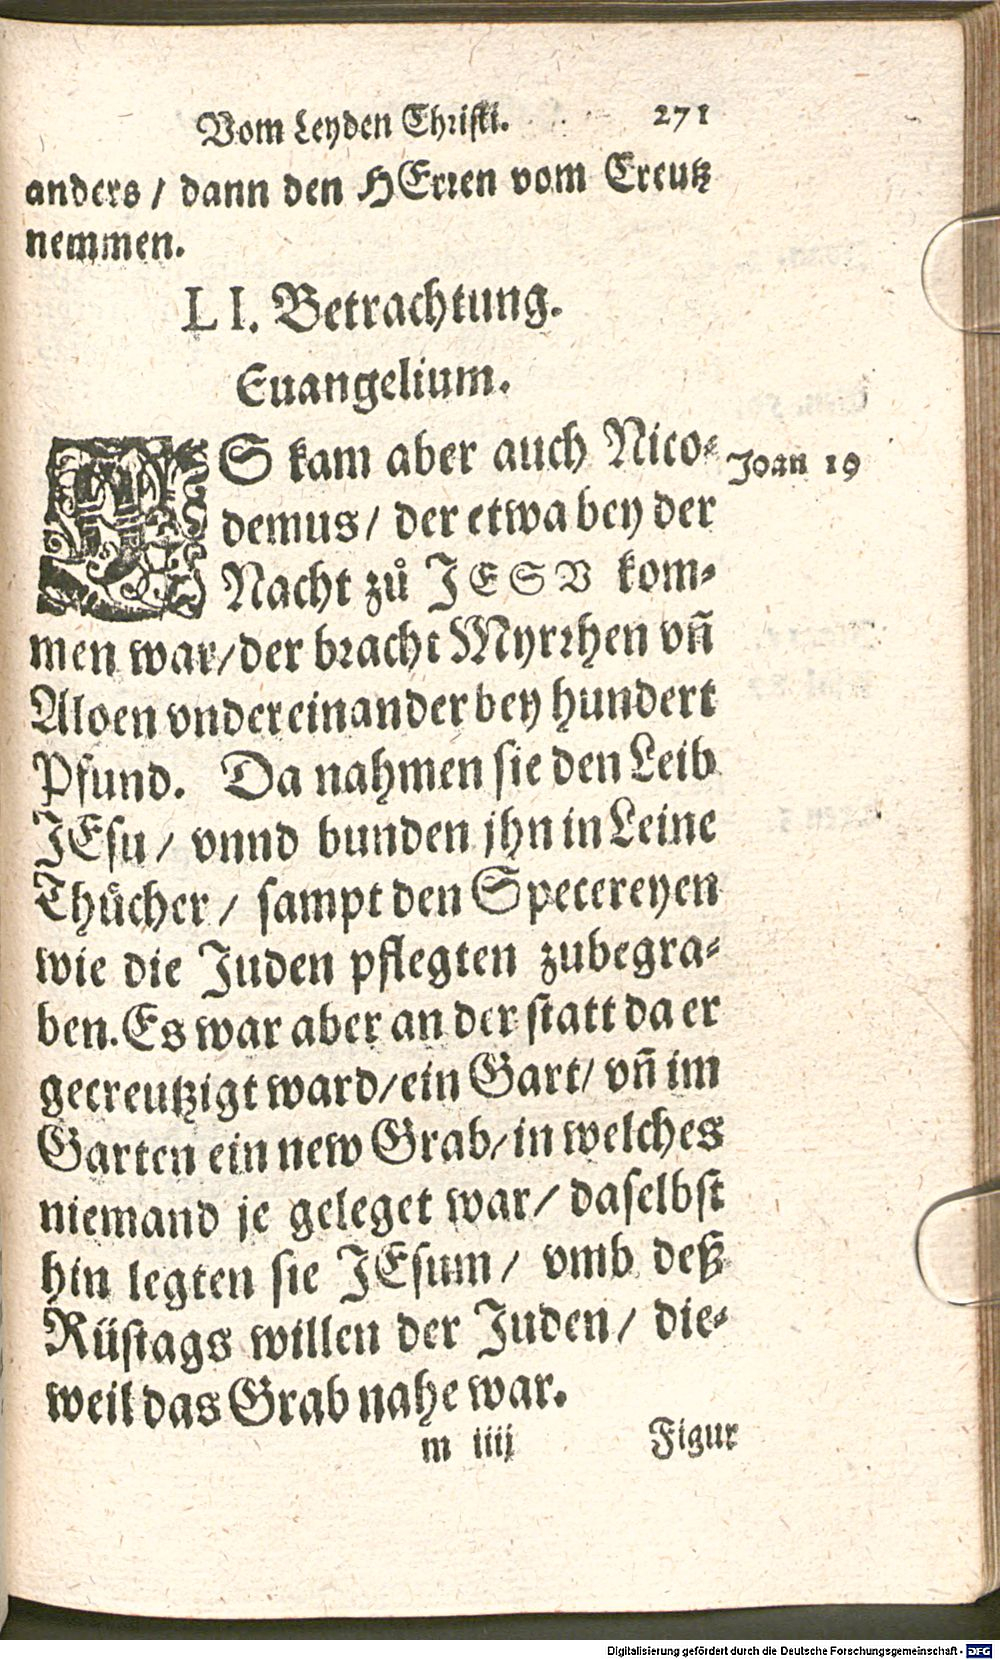 Vom Leyden Christi. 271
anders / dann den HErren vom Creutz
nemmen.
LI. Betrachtung.
Euangelium.
ES kam aber auch Nico-
Joan 19
demus / der etwa bey der
Nacht zů JESV kom-
men war / der bracht Myrrhen vn̄
Aloen vndereinander bey hundert
Pfund. Da nahmen sie den Leib
JEsu / vnnd bunden jhn in Leine
Thuͤcher / sampt den Specereyen
wie die Juden pflegten zubegra-
ben. Es war aber an der statt da er
gecreutzigt ward / ein Gart / vn̄ im
Garten ein new Grab / in welches
niemand je geleget war / daselbst
hin legten sie JEsum / vmb deß
Rüstags willen der Juden / die-
weil das Grab nahe war.
m iiij Figur
Digitalisierung gefördert durch die Deutsche Forschungsgemeinschaft - DFG